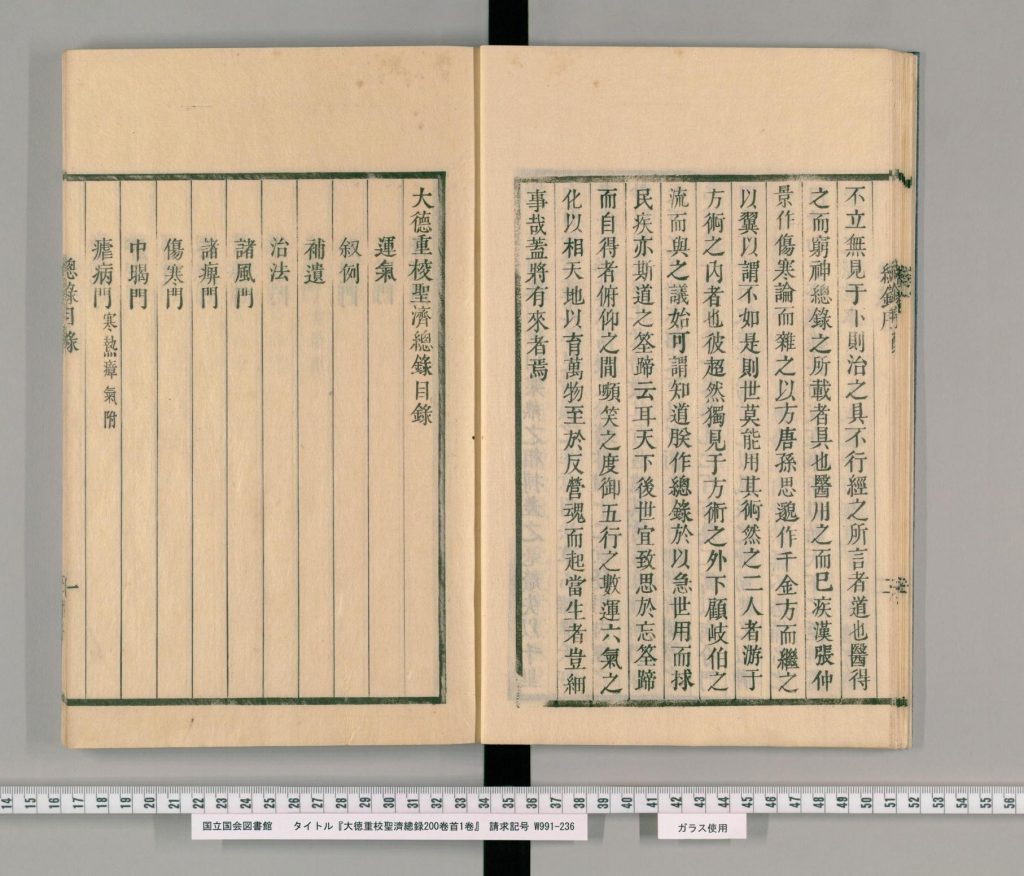 不立無見于卜則治之具不行經之所言者道也醫得
之而窮神總錄之所載者具也醫用之而已疾漢張仲
景作傷寒論而雜之以方唐孫思邈作千金方而繼之
以翼以謂不如是則世莫能用其術然之二人者游于
方術之內者也彼超然獨見于方術之外下顧岐伯之
流而與之議始可謂知道朕作總錄於以急世用而捄
民疾亦斯道之筌蹄云耳天下後世宜致思於忘筌蹄
而自得者俯仰之間嚬笑之度御五行之數運六氣之
化以相天地以育萬物至於反營魂而起當生者豈細
事哉蓋將有來者焉
大德重校聖濟總錄目錄
運氣
叙例
補遺
治法
諸風門
諸痹門
傷寒門
中暍門
瘧病門 寒熱瘴氣附
總錄目錄
一
14 15 16 17 18 19 20 21 22 23 24 25 26 27 28 29 30 31 32 33 34 35 36 37 38 39 40 41 42 43 44 45 46 47 48 49 50 51 52 53 54 55 56
国立国会図書館 タイトル『大徳重校聖濟總録200卷首1卷』 請求記号 W991-236
ガラス使用